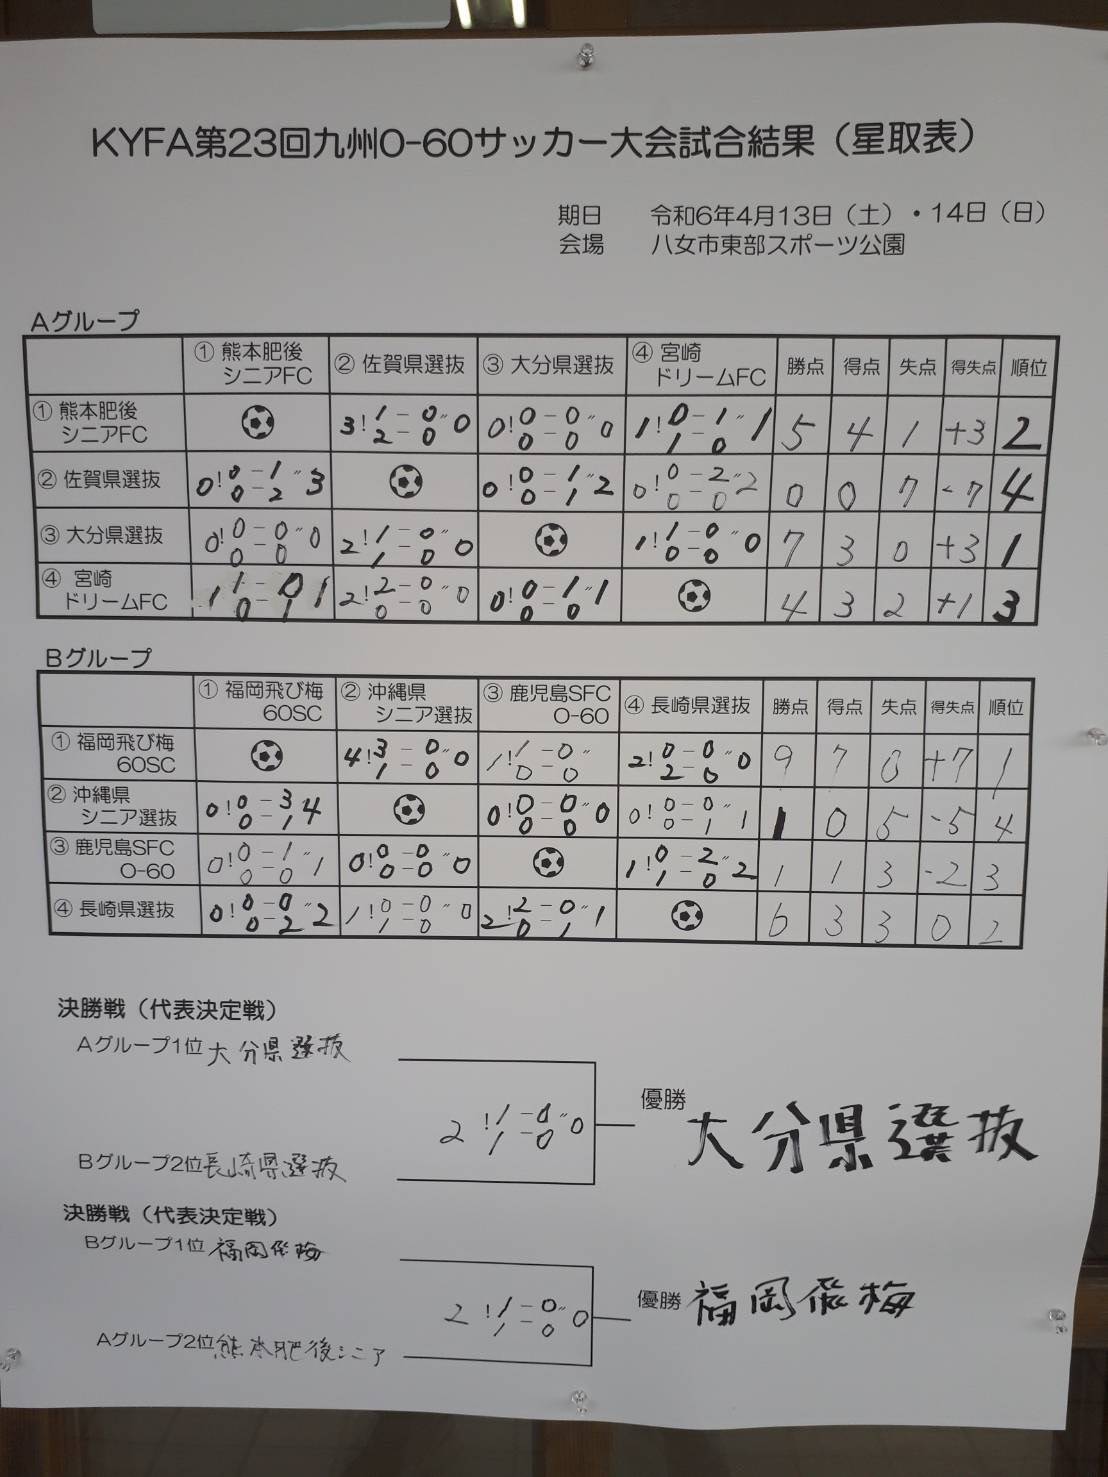 KYFA第23回九州O-60サッカー大会試合結果（星取表）
期日 令和6年4月13日（土）・14日（日）
会場 八女市東部スポーツ公園
Aグループ
① 熊本肥後シニアFC ② 佐賀県選抜 ③ 大分県選抜 ④ 宮崎ドリームFC 勝点 得点 失点 得失点 順位
① 熊本肥後シニアFC 3 1-0 2-0 0 0 0-0 0-0 0 1 0-1 1-0 1 5 4 1 +3 2
② 佐賀県選抜 0 0-1 0-2 3 0 0-1 0-1 2 0 0-2 0-0 2 0 0 7 -7 4
③ 大分県選抜 0 0-0 0-0 0 2 1-0 1-0 0 1 1-0 0-0 0 7 3 0 +3 1
④ 宮崎ドリームFC 1 1-0 0-1 1 2 2-0 0-0 0 0 0-1 0-0 1 4 3 2 +1 3
Bグループ
① 福岡飛び梅60SC ② 沖縄県シニア選抜 ③ 鹿児島SFC O-60 ④ 長崎県選抜 勝点 得点 失点 得失点 順位
① 福岡飛び梅60SC 4 3-0 1-0 0 1 1-0 0-0 2 0-0 2-0 0 9 7 0 +7 1
② 沖縄県シニア選抜 0 0-3 0-1 4 0 0-0 0-0 0 0 0-0 0-1 1 1 0 5 -5 4
③ 鹿児島SFC O-60 0 0-1 0-0 1 0 0-0 0-0 0 1 0-2 1-0 2 1 1 3 -2 3
④ 長崎県選抜 0 0-0 0-2 2 1 0-0 1-0 0 2 2-0 0-1 1 6 3 3 0 2
決勝戦（代表決定戦）
Aグループ1位 大分県選抜
2 1-0 1-0 0
優勝 大分県選抜
Bグループ2位 長崎県選抜
決勝戦（代表決定戦）
Bグループ1位 福岡飛梅
2 1-0 1-0 0
優勝 福岡飛梅
Aグループ2位 熊本肥後シニア